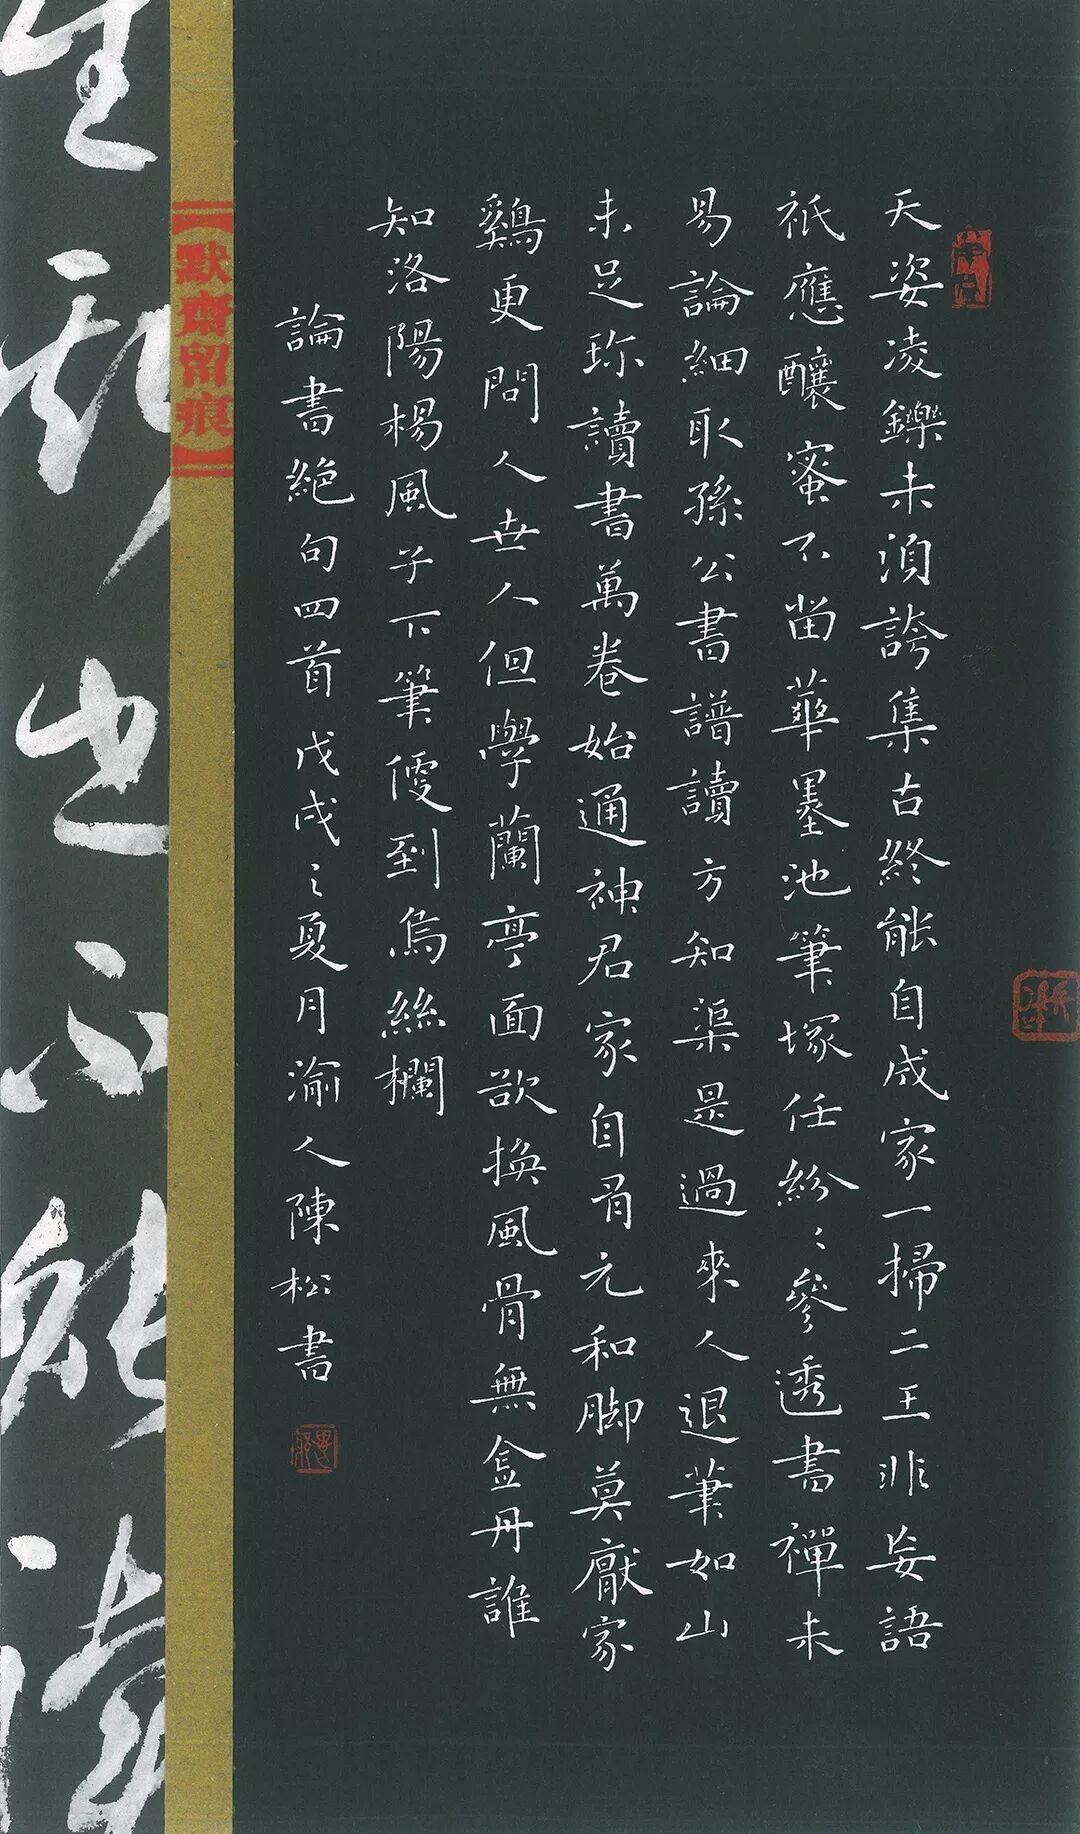 天姿凌鑠未須誇集古終能自成家一掃二王非妄語
祇應釀蜜不留華墨池筆塚任紛〻參透書禪未
易論細取孫公書譜讀方知渠是過來人退筆如山
未足珎讀書萬卷始通神君家自有元和脚莫厭家
鷄更問人世人但學蘭亭面欲換風骨無金丹誰
知洛陽楊風子下筆便到烏絲欄
論書絕句四首戊戌〻夏月渝人陳松書
默齋留痕